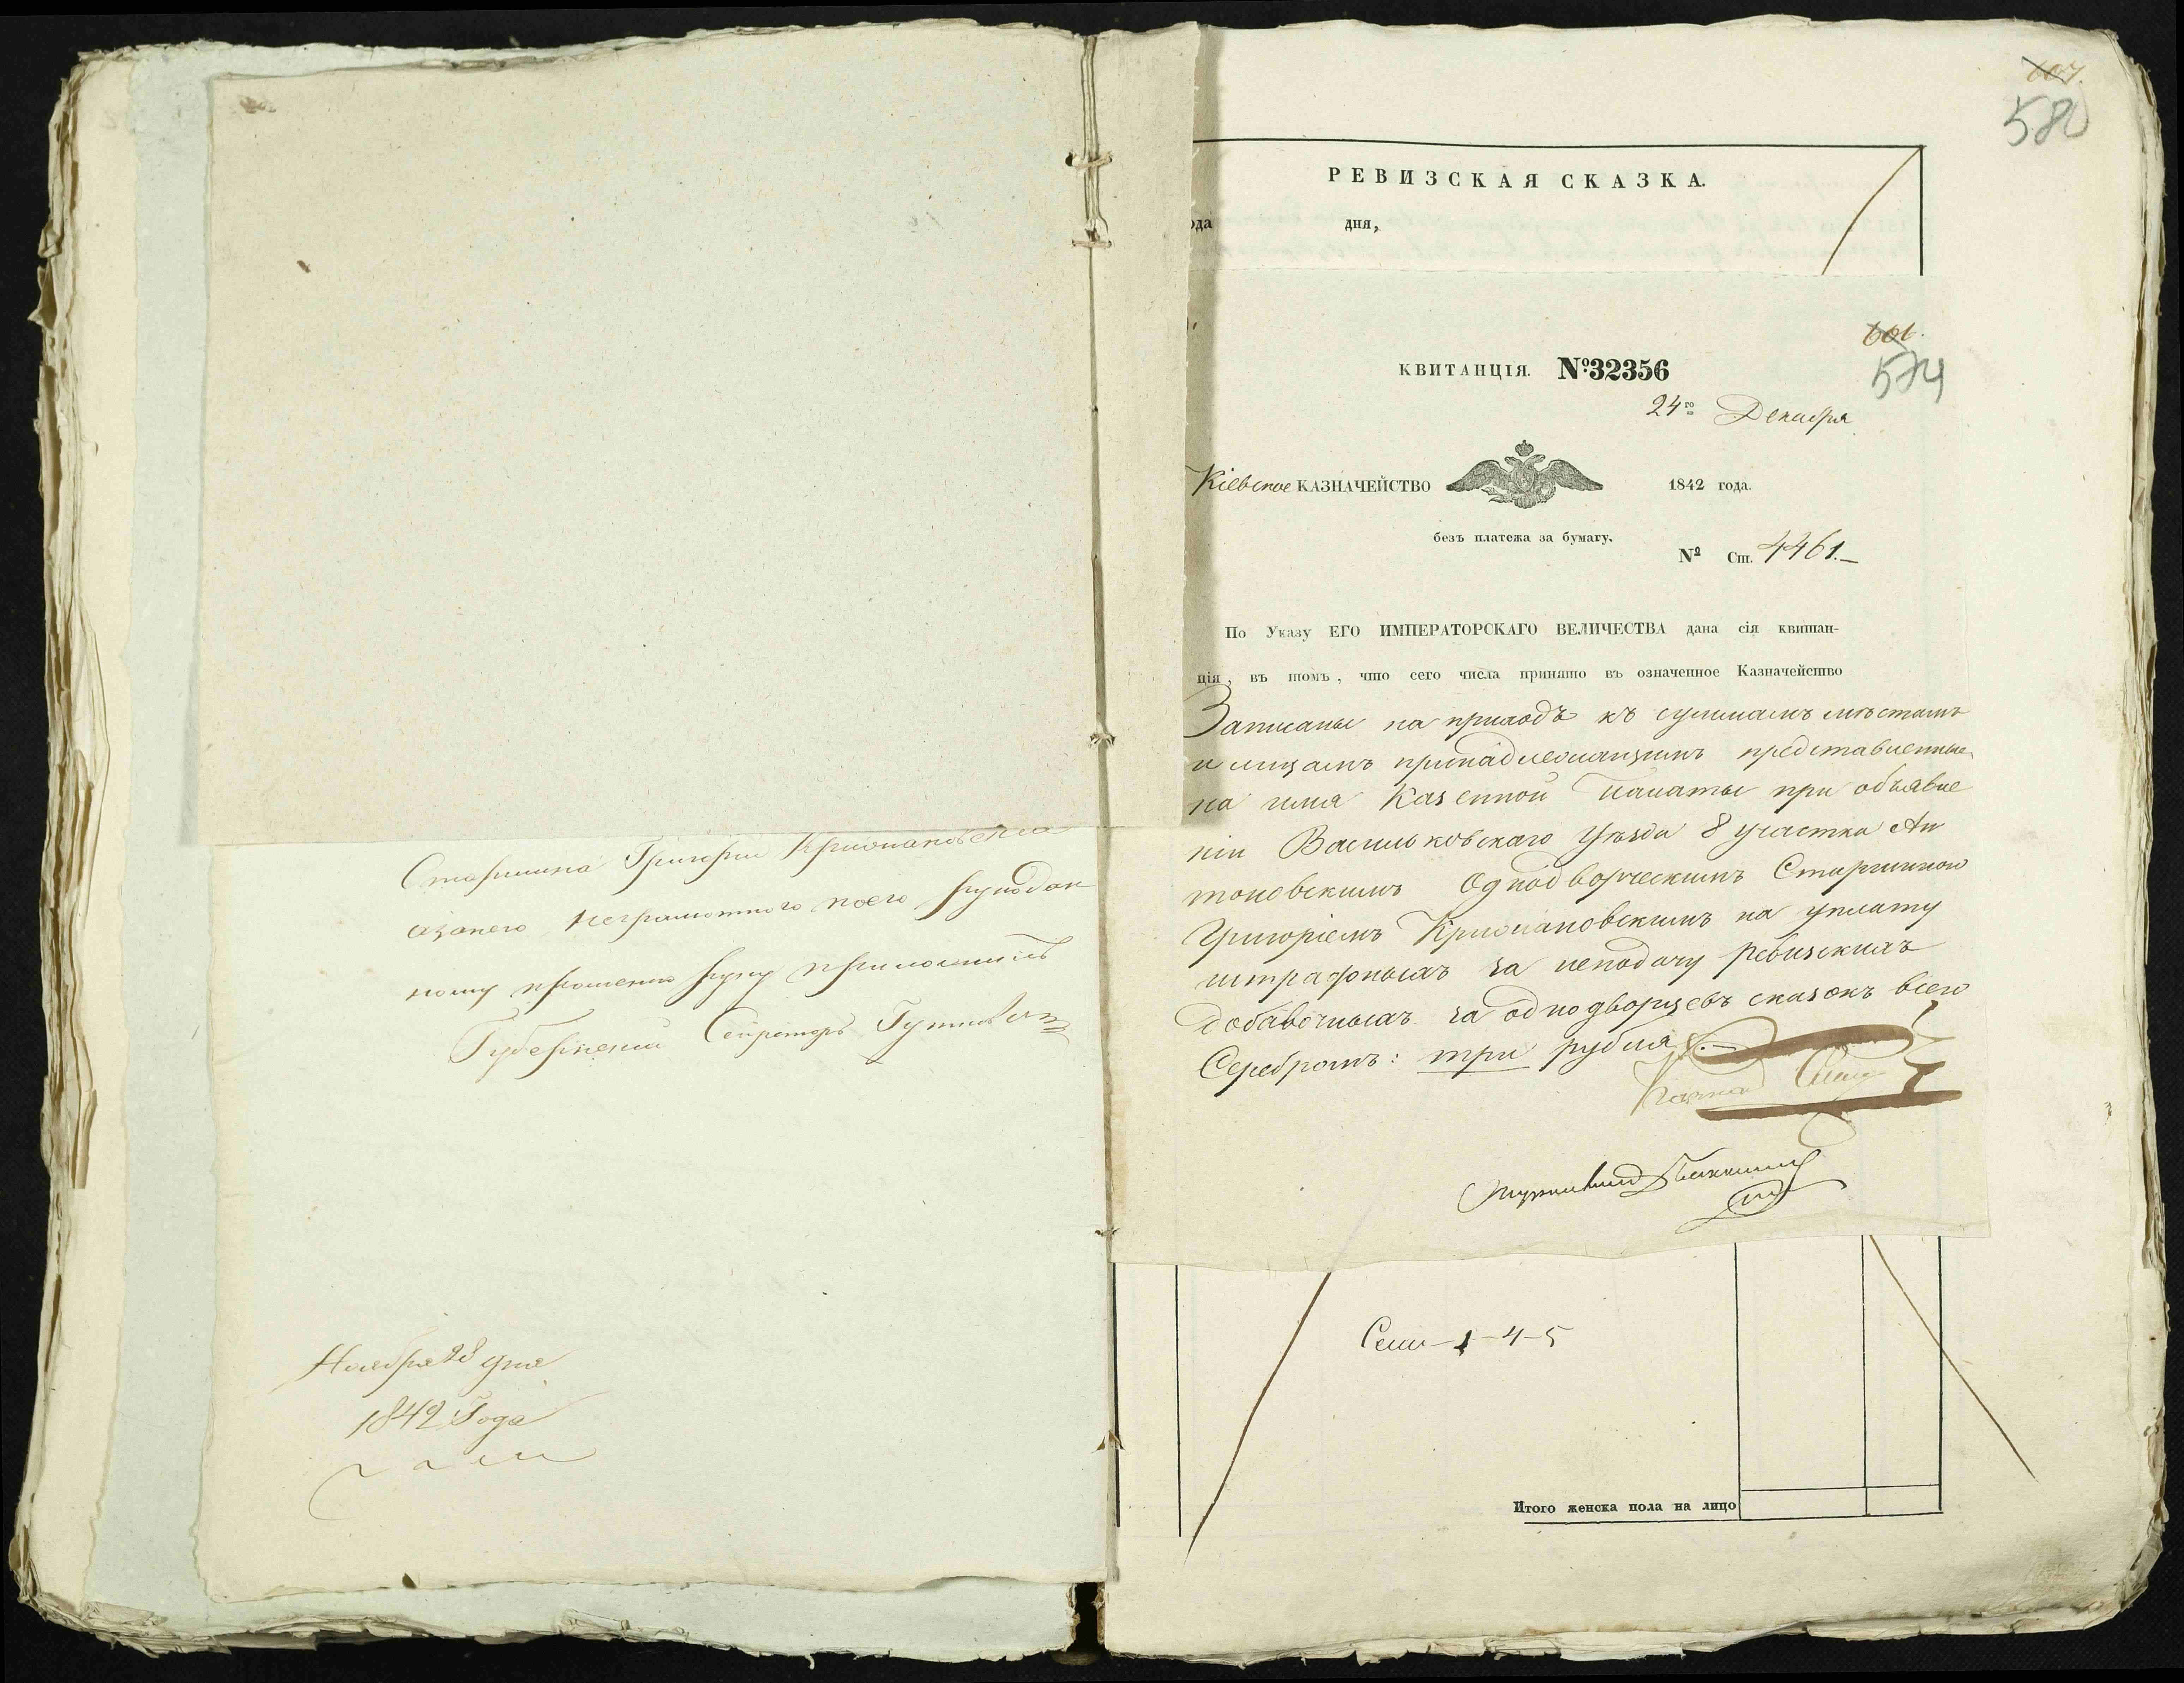 Старшина Григорій Крыжановскій
а за него неграмотнаго по его рукодан
ному прошенію руку приложилъ
Губернскій Секретарь
Ноября 28 дня
1842 Года
607.
580
РЕВИЗСКАЯ СКАЗКА.
ода дня,
601.
574
КВИТАНЦІЯ. №32356
24го Декабря
Кіевское КАЗНАЧЕЙСТВО 1842 года.
безъ платежа за бумагу.
№ Ст. 4461.–
По Указу ЕГО ИМПЕРАТОРСКАГО ВЕЛИЧЕСТВА дана сія квитан-
ція, въ томъ, что сего числа принято въ означенное Казначейство
Записаны на приходъ къ суммамъ мѣстамъ
и лицамъ принадлежащимъ представленные
на имя Казенной Палаты при объявле
ніи Васильковскаго Уѣзда 8 участка Ан
тоновскимъ Однодворческимъ Старшиною
Григоріемъ Крыжановскимъ на уплату
штрафныхъ за неподачу ревизскихъ
добавочныхъ за однодворцевъ сказокъ всего
Серебромъ: три рубля
Семи–1–4–5
Итого женска пола на лицо